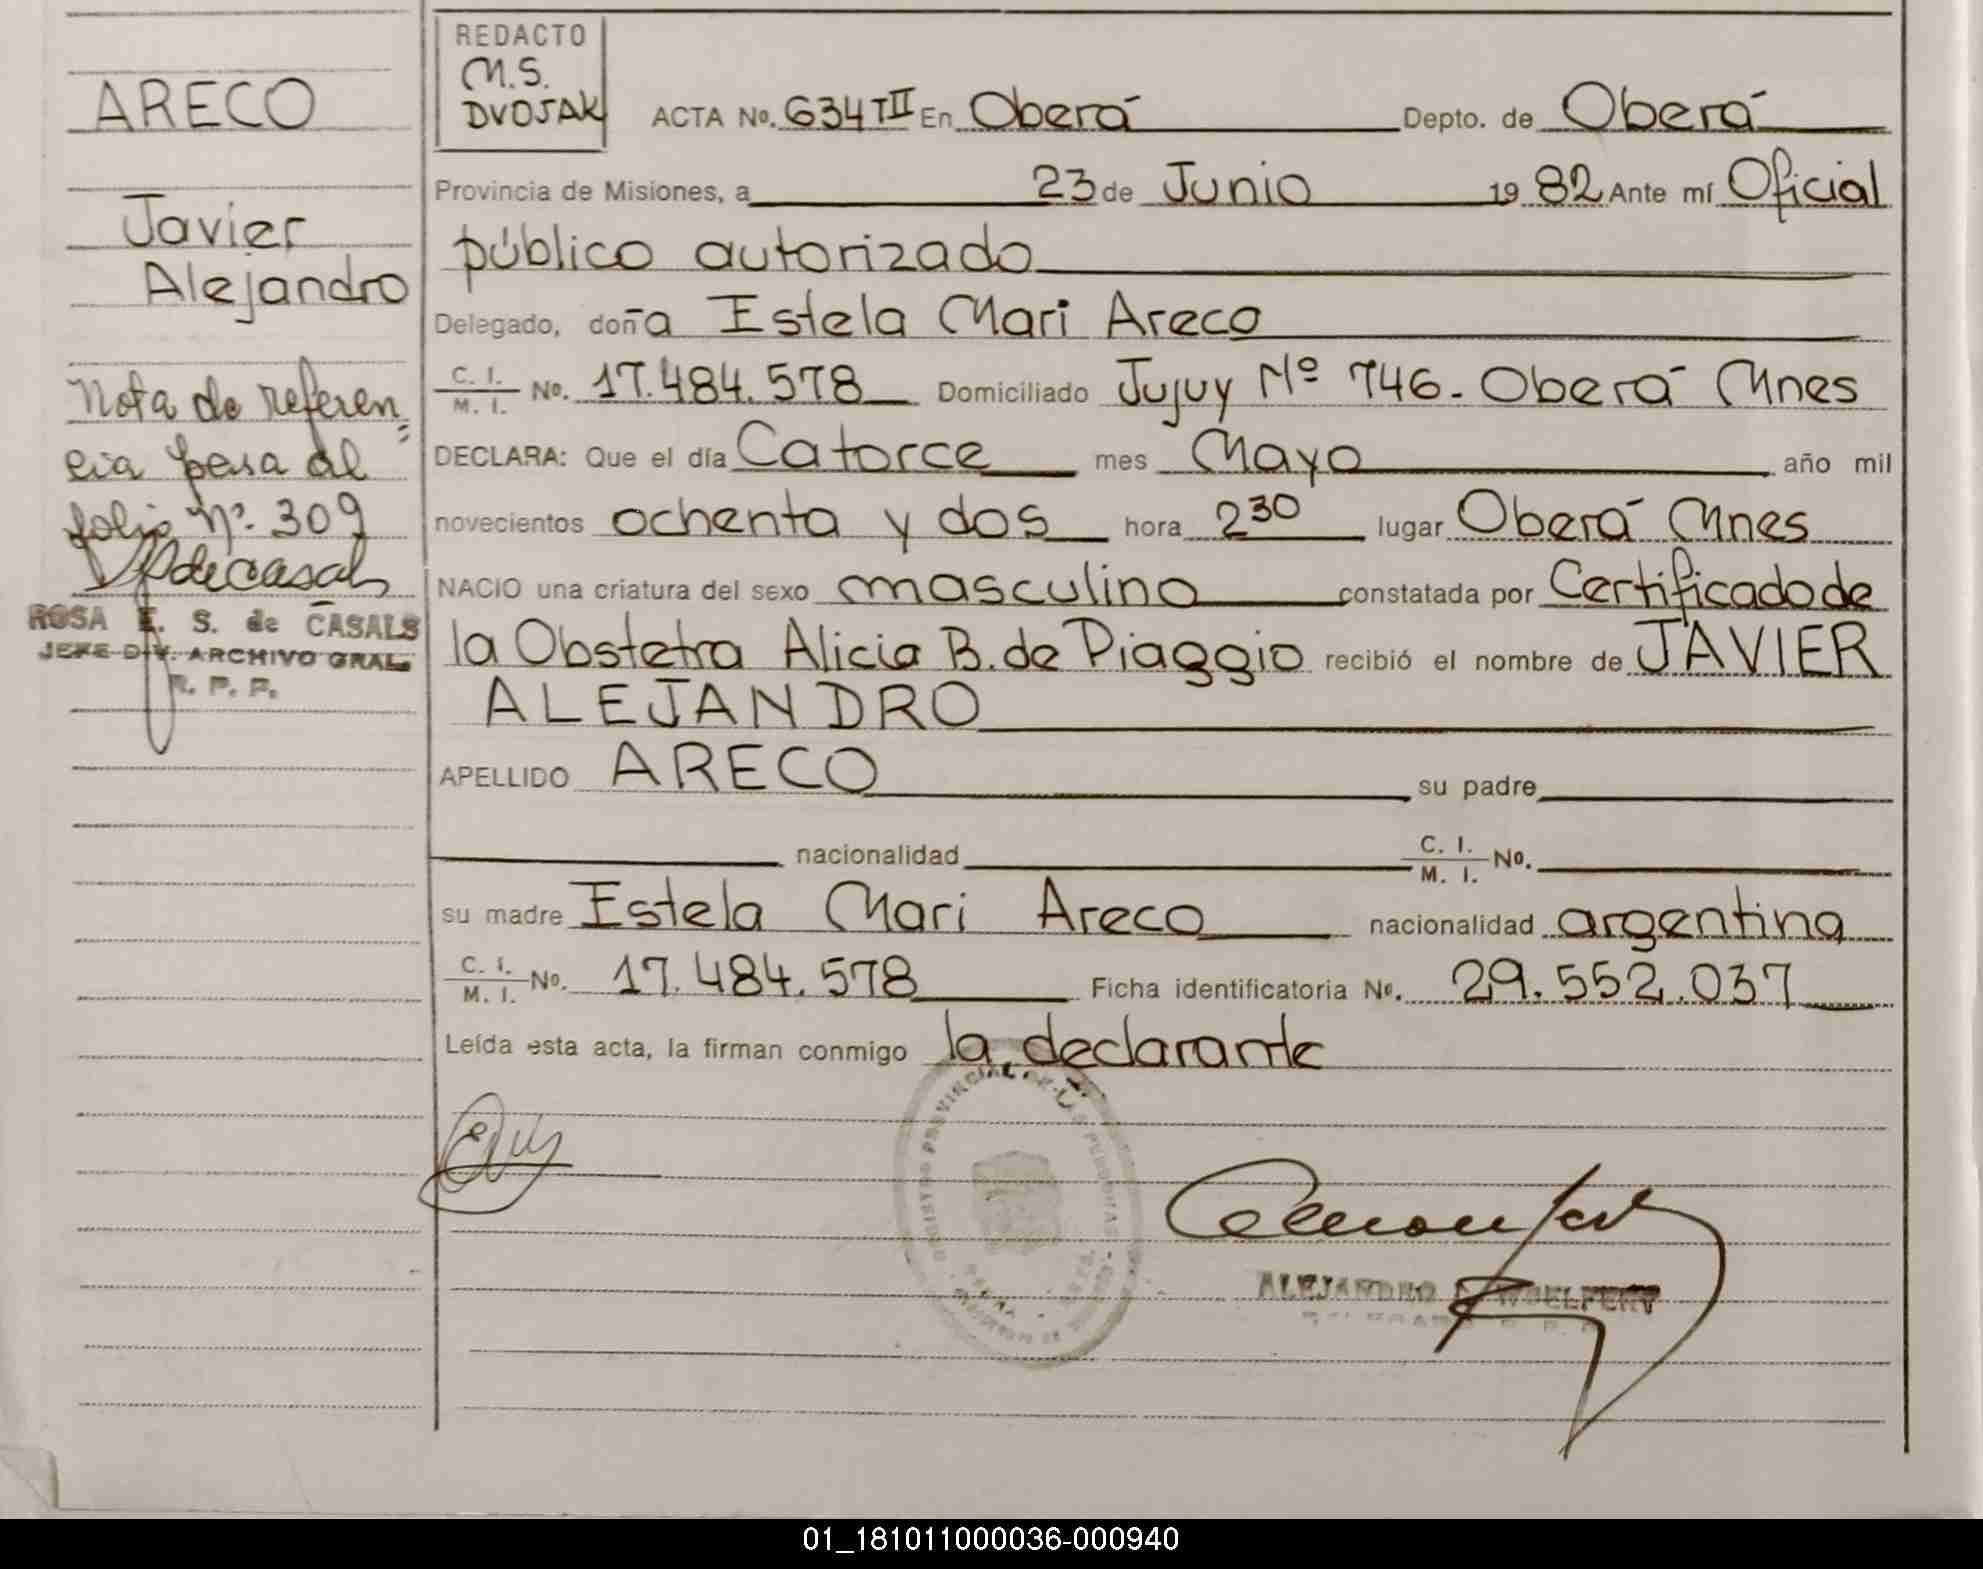 ARECO
Javier
Alejandro
Nota de referen
cia pasa al
folio Nº. 309
ROSA E. S. de CASALS
JEFE DIV. ARCHIVO GRAL.
R. P. P.
REDACTO
M.S.
DVOJAK
ACTA No. 634TII En Oberá Depto. de Oberá
Provincia de Misiones, a 23 de Junio 19 82 Ante mí Oficial
público autorizado
Delegado, doña Estela Mari Areco
C. I. / M. I. No. 17.484.578 Domiciliado Jujuy Nº 746. Oberá Mnes
DECLARA: Que el día Catorce mes Mayo año mil
novecientos ochenta y dos hora 2 30 lugar Oberá Mnes
NACIO una criatura del sexo masculino constatada por Certificado de
la Obstetra Alicia B. de Piaggio recibió el nombre de JAVIER
ALEJANDRO
APELLIDO ARECO su padre
nacionalidad C. I. / M. I. No.
su madre Estela Mari Areco nacionalidad argentina
C. I. / M. I. No. 17.484.578 Ficha identificatoria No. 29.552.037
Leída esta acta, la firman conmigo la declarante
REGISTRO PROVINCIAL DE LAS PERSONAS
ALEJANDRO WOELFERT
01_181011000036-000940